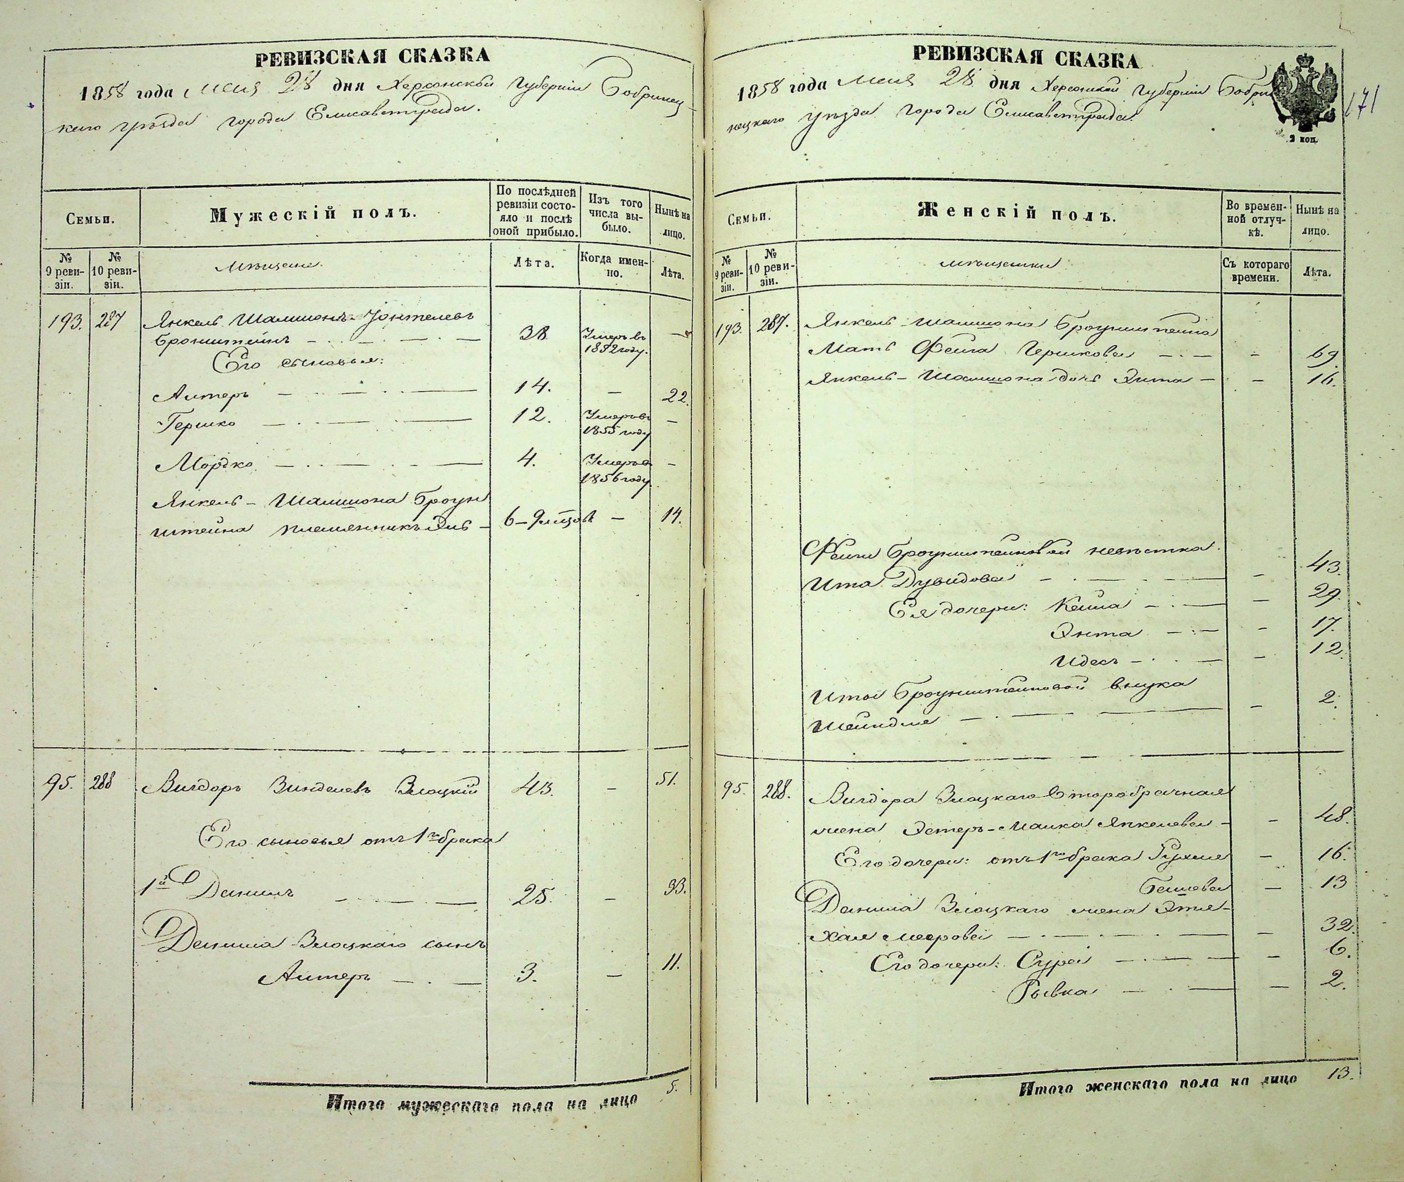 РЕВИЗСКАЯ СКАЗКА
1858 года Мая 28 дня Херсонской Губерніи Бобринец-
каго уѣзда города Елисаветграда.
Семьи.
Мужескій полъ.
По послѣдней ревизіи состояло и послѣ оной прибыло.
Изъ того числа выбыло.
Нынѣ на лицо.
№ 9 ревизіи.
№ 10 ревизіи.
Мѣщане
Лѣта.
Когда именно.
Лѣта.
193. 287 Янкель Шлишонъ
Бронштейнъ 38 Умеръ въ 1852 году. —
Его сыновья:
Алтеръ 14. — 22.
Гершко 12. Умеръ въ 1855 году —
Мордко 4. Умеръ въ 1856 году. —
Янкель-Шлишона Броун
штейна племянникъ 6 — 14.
95. 288 Вигдоръ Зинделевъ Злоцкій 43. — 51.
Его сыновья отъ 1го брака
1й Данилъ 25. — 33.
Данила Злоцкаго сынъ
Алтеръ 3. — 11.
Итого мужескаго пола на лицо 5.
РЕВИЗСКАЯ СКАЗКА
171
1858 года Мая 28 дня Херсонской Губерніи Бобри
нецкаго уѣзда города Елисаветграда
2 коп.
Семьи.
Женскій полъ.
Во временной отлучкѣ.
Нынѣ на лицо.
№ 9 ревизіи.
№ 10 ревизіи.
мѣщанки
Съ котораго времени.
Лѣта.
193. 287. Янкель-Шлишона Броунштейна
Мать Фейга Гершкова 69.
Янкель-Шлишона дочь Энта — 16.
Фейги Броунштейновой невѣстка
Ита Дувидова — 43.
Ея дочери: Кейла — 29.
Энта — 17.
Идесъ — 12.
Итой Броунштейновой внука
Шейндля — 2.
95. 288. Вигдора Злоцкаго второбрачная
жена Эстеръ-Малка Янкелева — 48.
Его дочери: отъ 1го брака Рухля — 16.
Башева — 13
Данила Злоцкаго жена Этля-
Хая Меерова — 32.
Его дочери: Сура — 6.
Рывка — 2.
Итого женскаго пола на лицо 13.